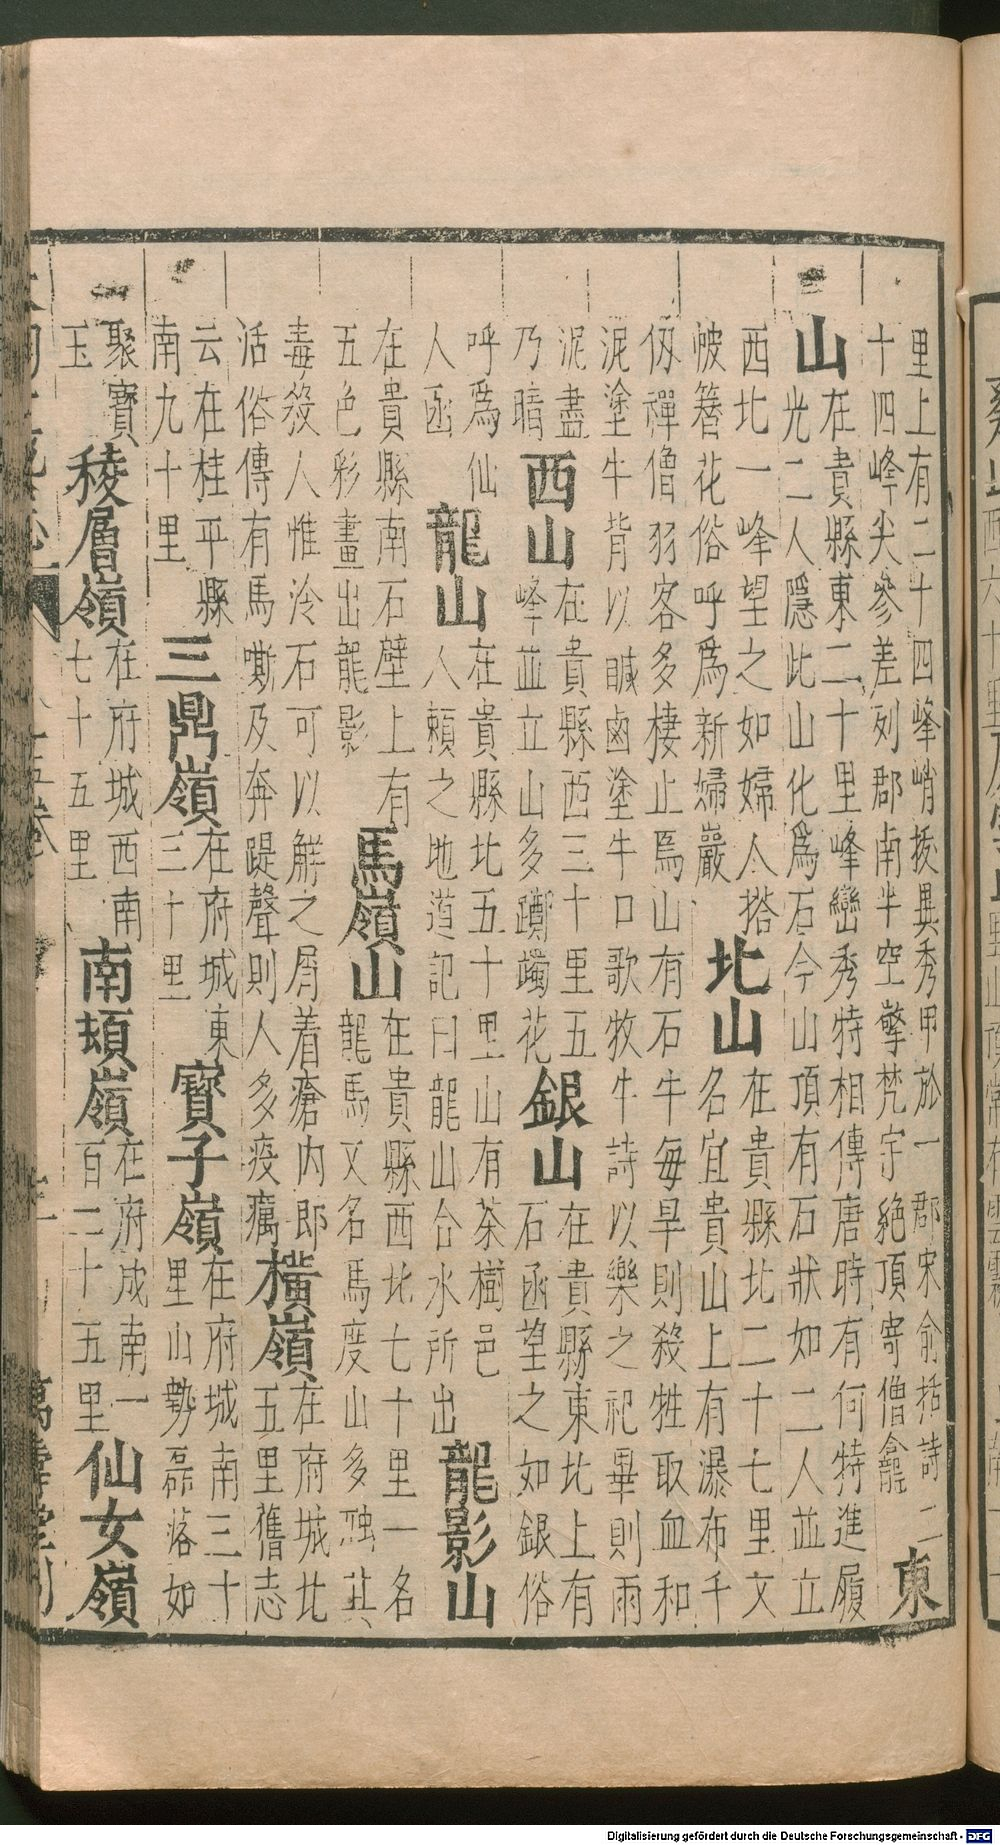 里上有二十四峰峭拔異秀甲於一郡宋俞括詩二
十四峰尖參差列郡南半空擎梵宇絕頂寄僧龕
東
山
在貴縣東二十里峰巒秀特相傳唐時有何特進履
光二人隱此山化爲石今山頂有石狀如二人並立
西北一峰望之如婦人搭
帔簪花俗呼爲新婦巖
北山
在貴縣北二十七里文
名宜貴山上有瀑布千
仭禪僧羽客多棲止焉山有石牛每旱則殺牲取血和
泥塗牛背以鹹鹵塗牛口歌牧牛詩以樂之祀畢則雨
泥盡
乃晴
西山
在貴縣西三十里五
峰並立山多躑躅花
銀山
在貴縣東北上有
石函望之如銀俗
呼爲仙
人函
龍山
在貴縣北五十里山有茶樹邑
人賴之地道記曰龍山合水所出
龍影山
在貴縣南石壁上有
五色彩畫出龍影
馬嶺山
在貴縣西北七十里一名
龍馬又名馬度山多其
毒殺人惟冷石可以觧之屑着瘡内即
活俗傳有馬嘶及奔踶聲則人多疫癘
橫嶺
在府城北
五里舊志
云在桂平縣
南九十里
三鼎嶺
在府城東
三十里
寶子嶺
在府城南三十
里山勢磊落如
聚寶
玉
稜層嶺
在府城西南
七十五里
南嶺
在府成南一
百二十五里
仙女嶺
萬壽堂刊
Digitalisierung gefördert durch die Deutsche Forschungsgemeinschaft - DFG